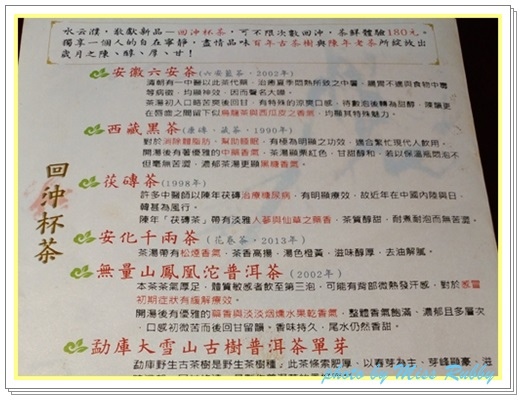 水云濮，敬獻新品—回沖杯茶，可不限次數回沖，茶鮮體驗180元。
獨享一個人的自在寧靜，盡情品味百年古茶樹與陳年老茶所綻放出
歲月之陳、醇、厚、甘！
回沖杯茶
安徽六安茶(六安籃茶，2002年)
清朝有一中醫以此茶代藥，治癒夏季悶熱所致之中暑、腸胃不適與食物中毒
等病徵，均顯神效，因而聲名大噪。
茶湯初入口略苦爽後回甘，有特殊的涼爽口感，待數泡後轉為甜醇，陳韻更
在唇齒之間留下似烏龍茶與西瓜皮之香氣，均顯其特殊魅力。
西藏黑茶(康磚、藏茶，1990年)
對於消除體脂肪、幫助睡眠，有極為明顯之功效，適合繁忙現代人飲用。
開湯後有著優雅的中藥香氣，茶湯顯栗紅色，甘甜醇和，若以保溫瓶悶泡不
但毫無苦澀，濃郁茶湯更顯黑糖香氣。
茯磚茶(1998年)
許多中醫師以陳年茯磚治療糖尿病，有明顯療效，故近年在中國內陸與日、
韓甚為風行。
陳年「茯磚茶」帶有淡雅人蔘與仙草之藥香，茶質醇甜，耐煮耐泡而無苦澀。
安化千兩茶（花卷茶，2013年）
茶湯帶有松煙香氣，茶香高揚，湯色橙黃，滋味醇厚，去油解膩。
無量山鳳凰沱普洱茶（2002年）
本茶茶氣厚足，體質敏感者飲至第三泡，可能有背部微熱發汗感，對於感冒
初期症狀有緩解療效。
開湯後有優雅的藥香與淡淡煙燻水果乾香氣，整體香氣飽滿、濃郁且多層次
、口感初微苦而後回甘留韻。香味持久，尾水仍然香甜。
勐庫大雪山古樹普洱茶單芽
勐庫野生古茶樹是野生茶樹種」此茶條索肥厚、以春芽為主、芽峰顯豪、滋
photo by Miss Rubby